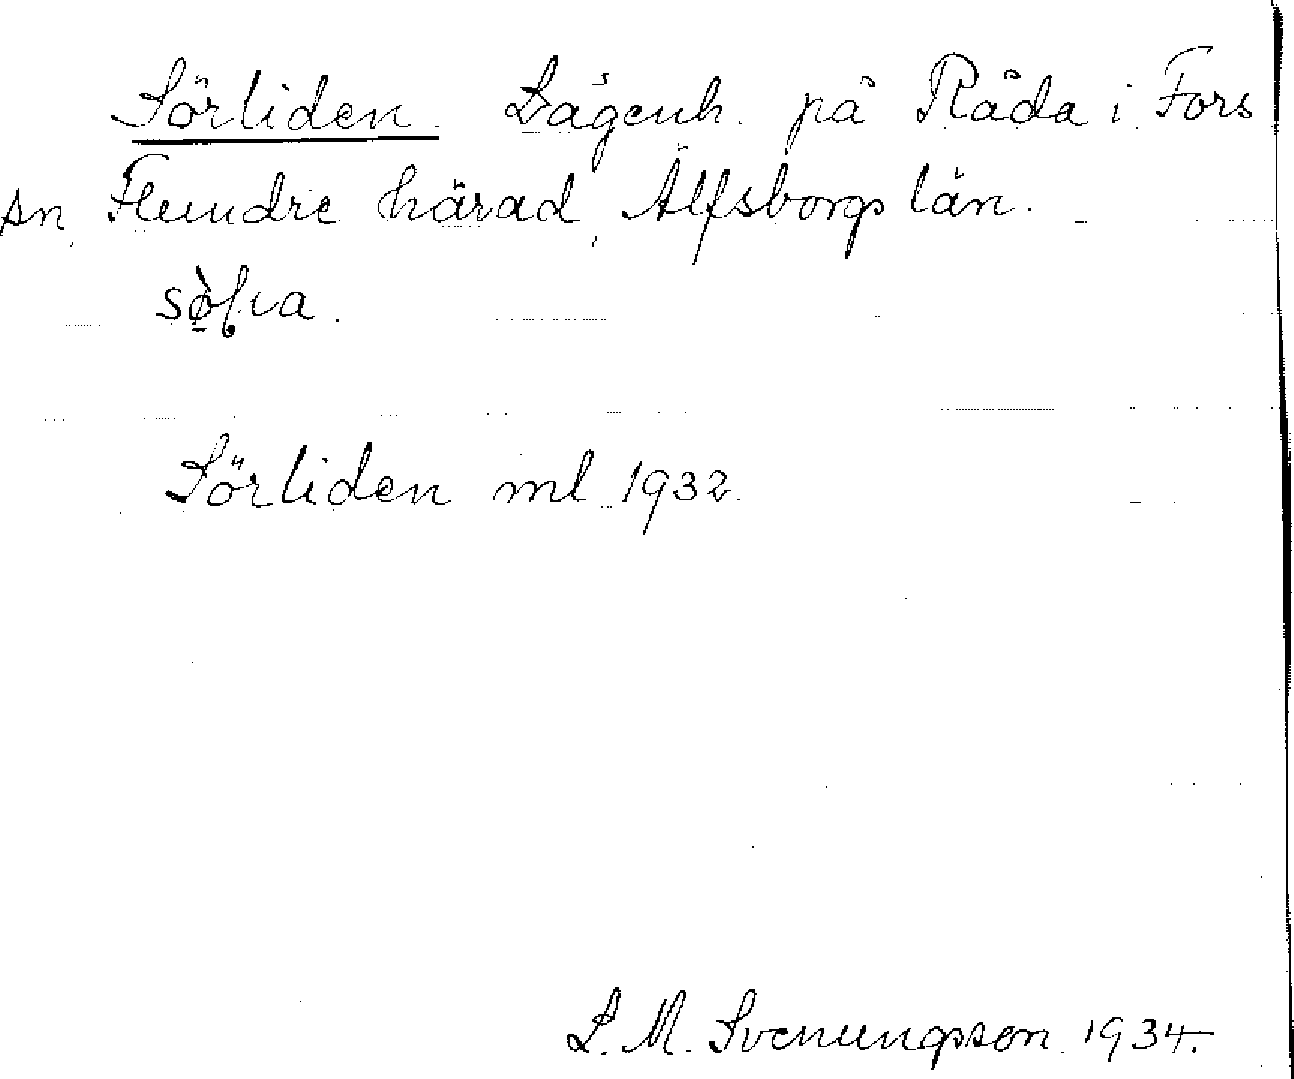 Sörliden. Lägenh. på Råda i Fors
sn, Flundre härad, Älfsborgs län.
Sörliden ml 1932.
L. M. Svenungsson 1934.